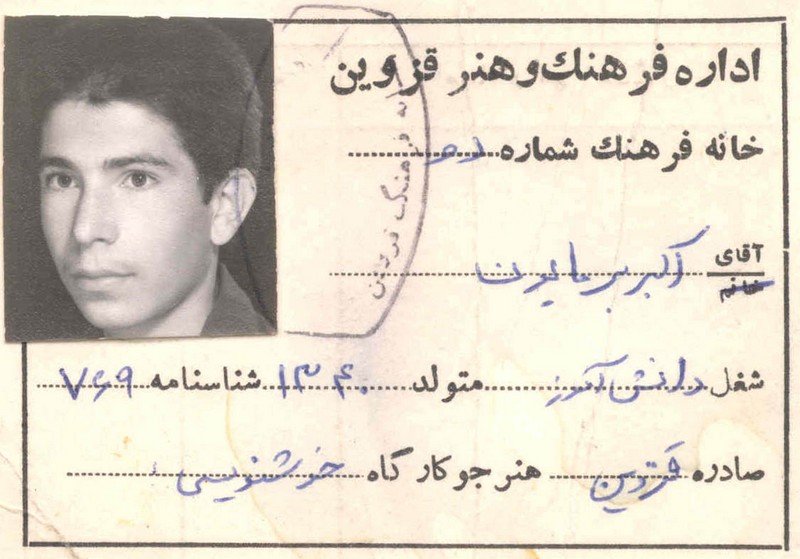 اداره فرهنك وهنر قزوین
خانه فرهنك شماره دو
آقای
خانم
اکبر
شغل دانش آموز متولد ۱۳۴۰ شناسنامه ۷۶۹
صادره قزوین هنرجو کارگاه خوشنویسی
خانه فرهنگ قزوین